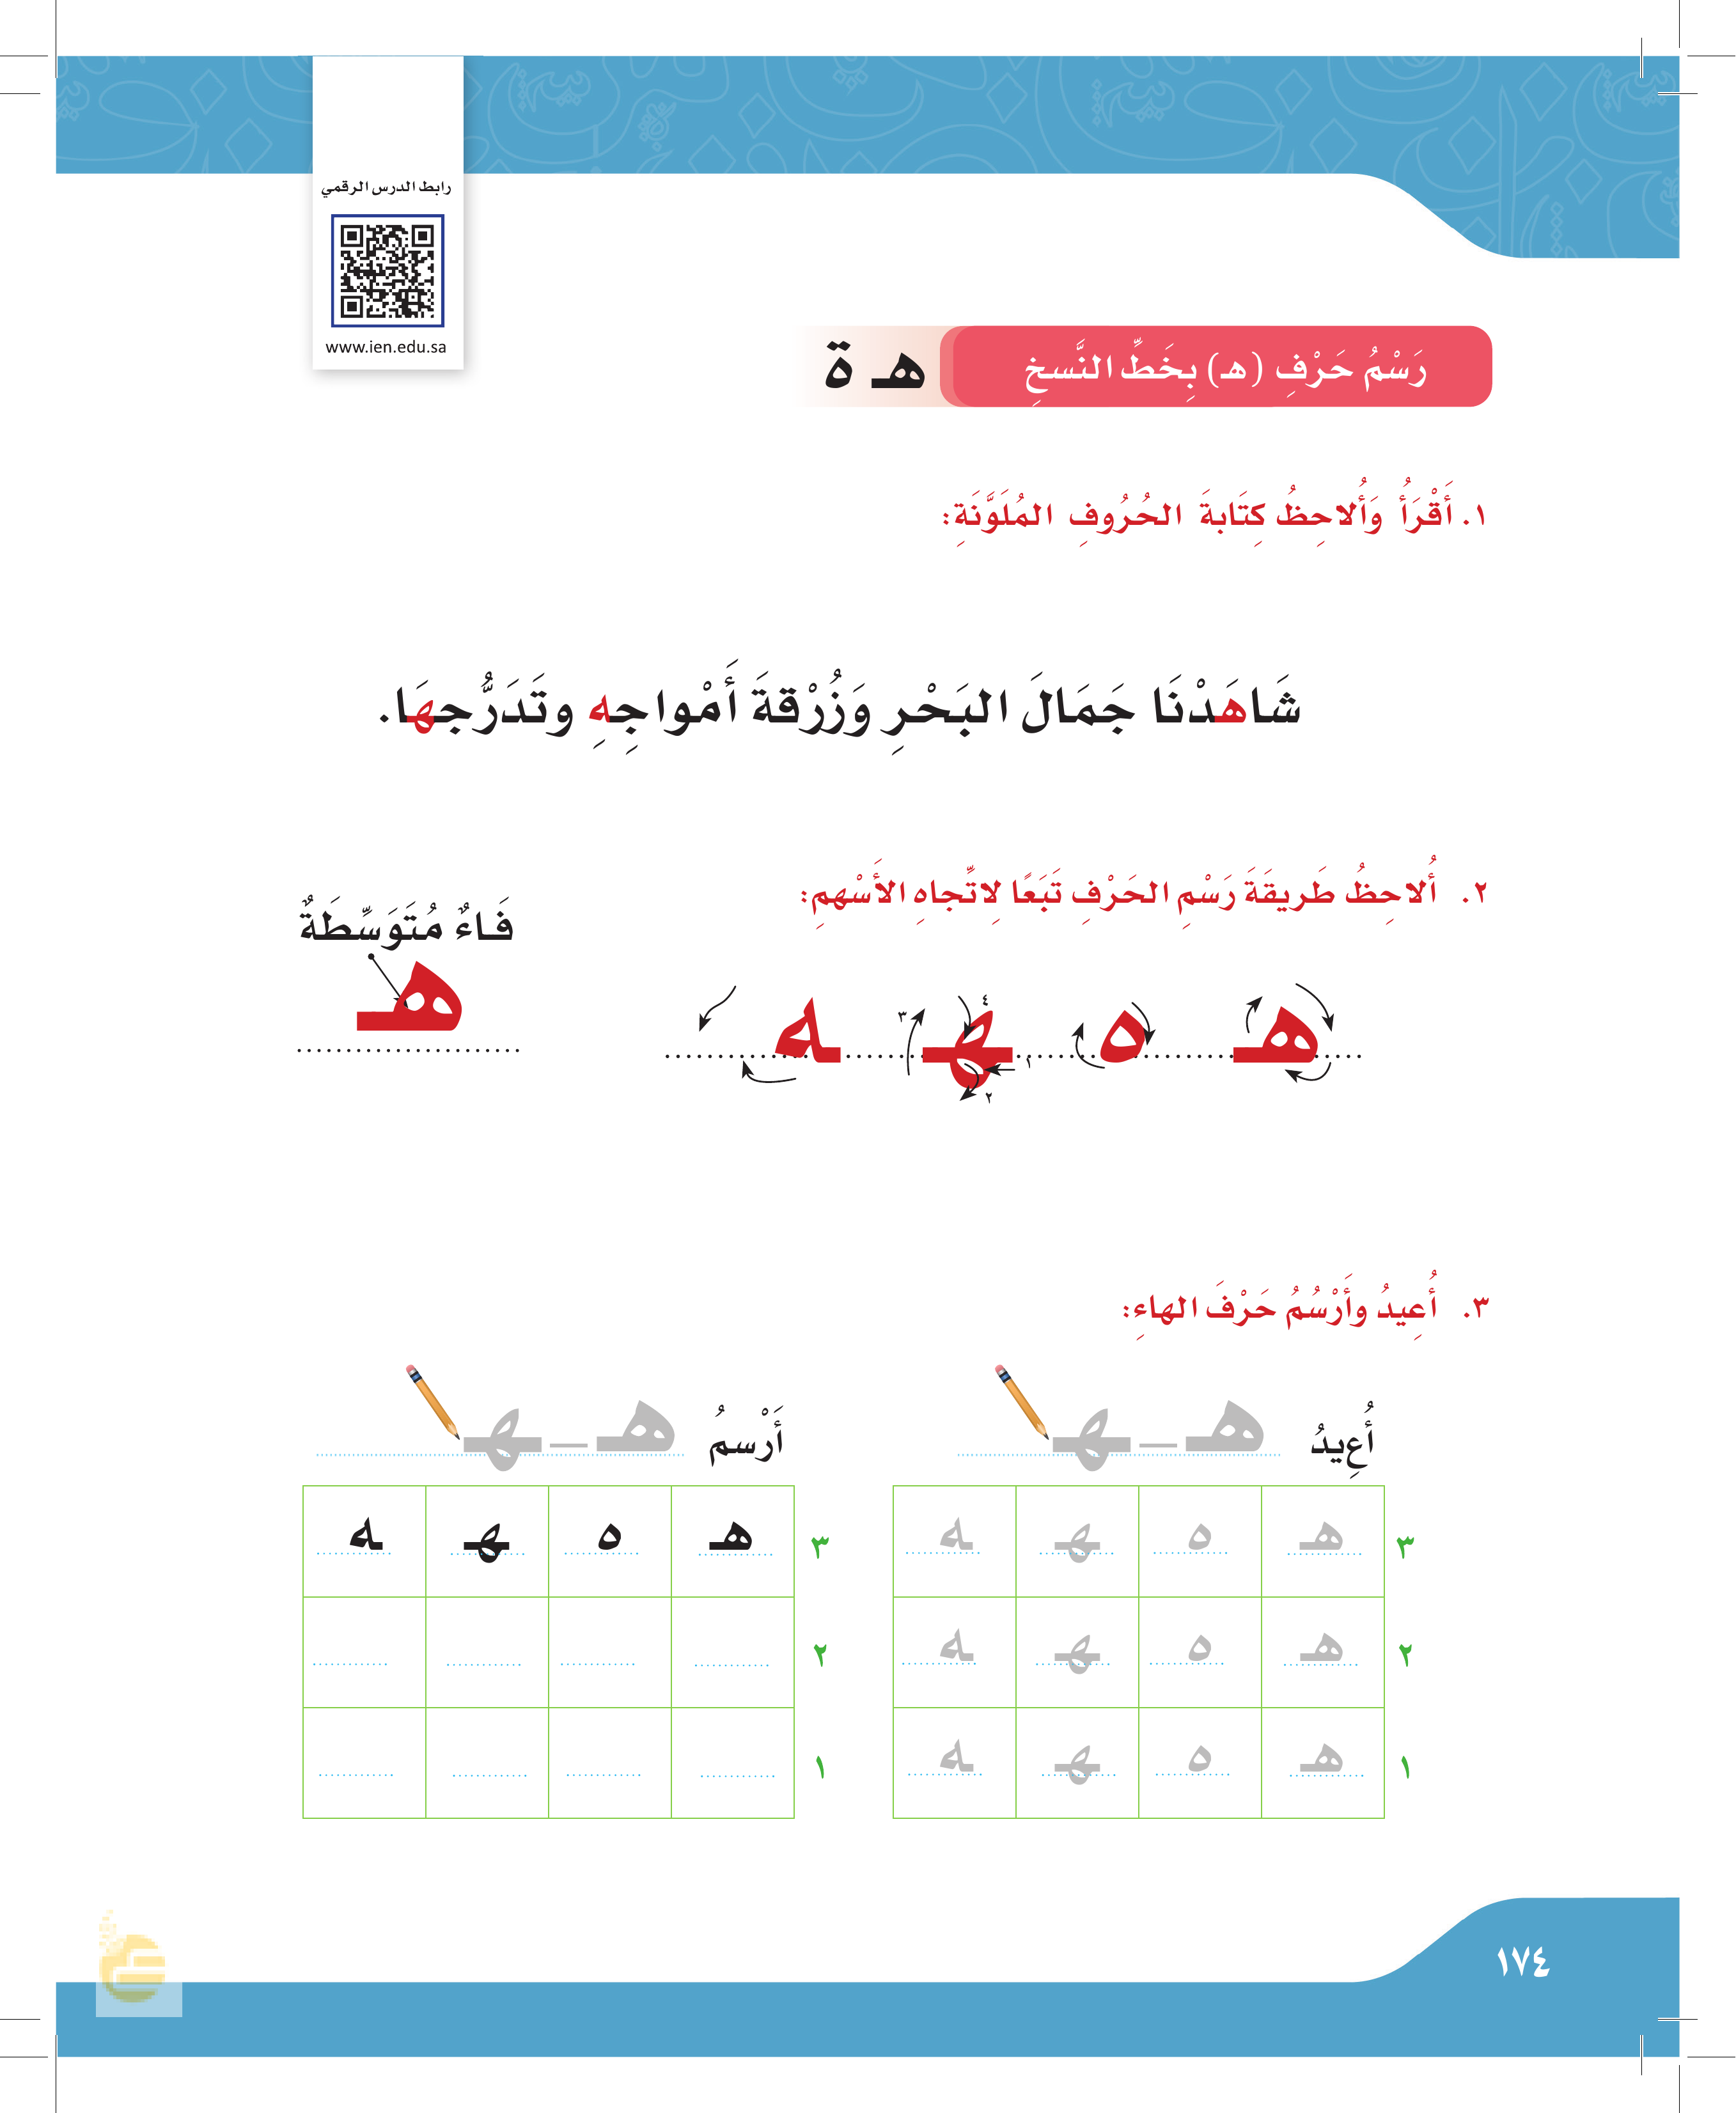 رابط الدرس الرقمي
www.ien.edu.sa
رَسْمُ حَرْفِ (هـ) بِخَطِّ النَّسخِ هـ ة
١. أَقْرَأُ وَأُلاحِظُ كِتَابةَ الحُرُوفِ المُلَوَّنَةِ:
شَاهَدْنَا جَمَالَ البَحْرِ وَزُرْقةَ أَمْواجِهِ وتَدَرُّجهَا.
٢. أُلاحِظُ طَريقَةَ رَسْمِ الحَرْفِ تَبَعًا لِاتِّجاهِ الأَسْهمِ:
فَاءٌ مُتَوَسِّطَةٌ
هـ
هـ ه ـهـ ـه
١ ٢ ٣ ٤
٣. أُعِيدُ وأَرْسُمُ حَرْفَ الهاءِ:
أُعِيدُ هـ ـ ـهـ
٣ هـ ه ـهـ ـه
٢ هـ ه ـهـ ـه
١ هـ ه ـهـ ـه
أَرْسمُ هـ ـ ـهـ
٣ هـ ه ـهـ ـه
٢
١
١٧٤